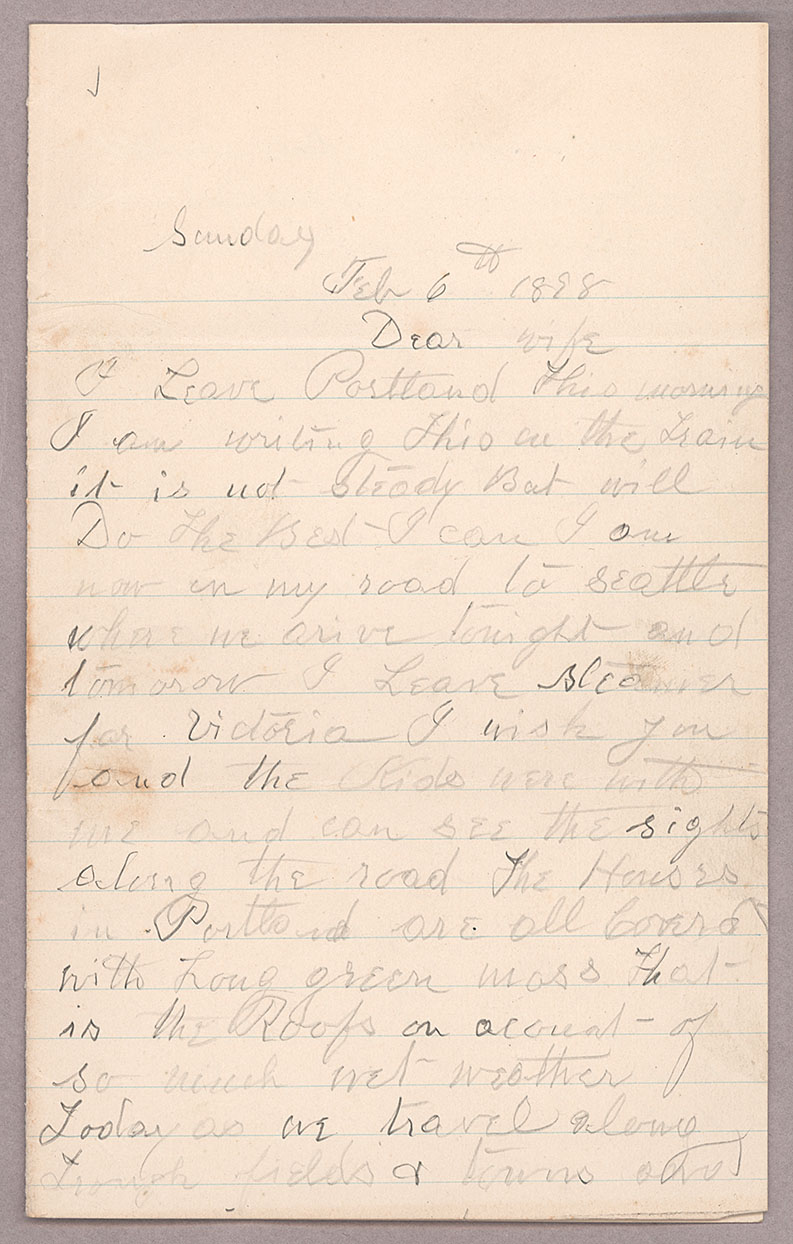 Sunday
Feb 6th 1898
Dear wife
I Leave Portland This morning
I am writing This on the Train
it is not steady But will
Do The Best I can I am
now on my road to seattle
where we arive tonight and
tomorow I Leave steamer
for Victoria I wish you
and the Kids were with
me and can see the sights
along the road The Houses
in Portland are all Coverd
with Long green moss That
is the Roofs on acount of
so much wet weather
Today as we travel along
Trough fields & towns and